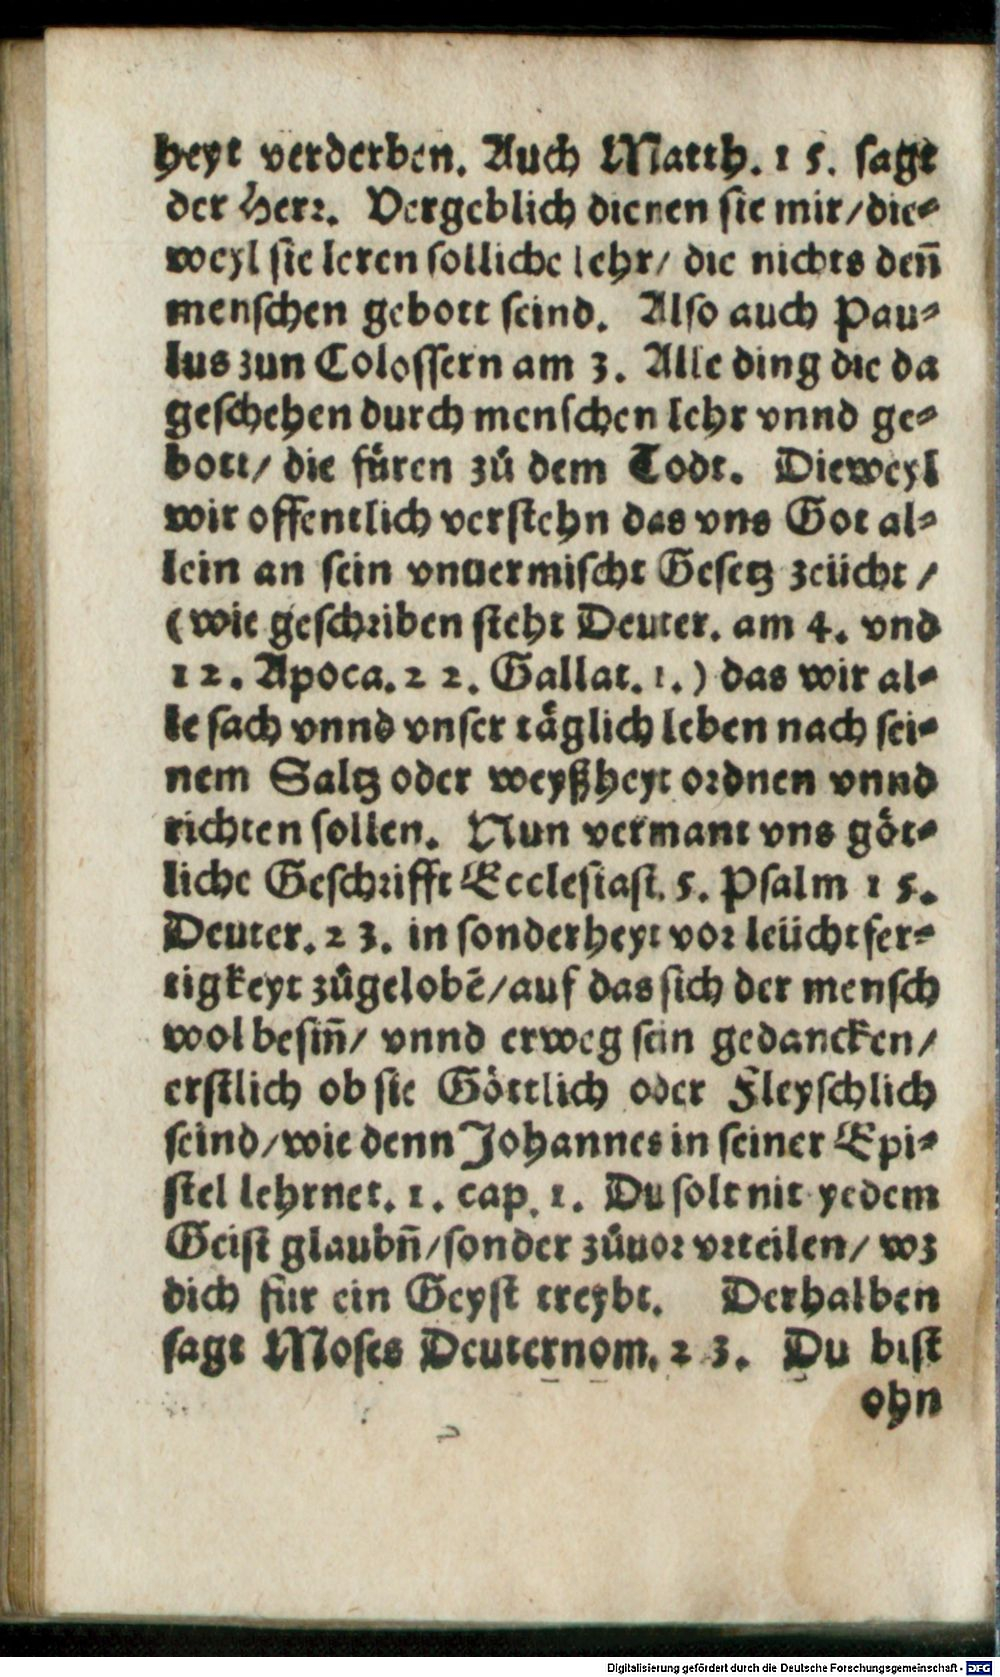 heyt verderben. Auch Matth. 1 5. sagt
der Herr. Vergeblich dienen sie mir/die-
weyl sie leren solliche lehr/ die nichts deñ
menschen gebott seind. Also auch Pau-
lus zun Colossern am 3. Alle ding die da
geschehen durch menschen lehr vnnd ge-
bott/ die füren zů dem Todt. Dieweyl
wir offentlich verstehn das vns Got al-
lein an sein vnuermischt Gesetz zeücht /
(wie geschriben steht Deuter. am 4. vnd
1 2. Apoca. 2 2. Gallat. 1.) das wir al-
le sach vnnd vnser täglich leben nach sei-
nem Saltz oder weyßheyt ordnen vnnd
richten sollen. Nun vermant vns göt-
liche Geschrifft Ecclesiast. 5. Psalm 1 5.
Deuter. 2 3. in sonderheyt vor leüchtfer-
tigkeyt zůgelobē/auf das sich der mensch
wol besiñ/ vnnd erweg sein gedancken/
erstlich ob sie Göttlich oder Fleyschlich
seind/wie denn Johannes in seiner Epi-
stel lehrnet. 1. cap. 1. Du solt nit yedem
Geist glaubñ/sonder zůuor vrteilen/ wz
dich für ein Geyst treybt. Derhalben
sagt Moses Deuternom. 2 3. Du bist
ohn
Digitalisierung gefördert durch die Deutsche Forschungsgemeinschaft - DFG